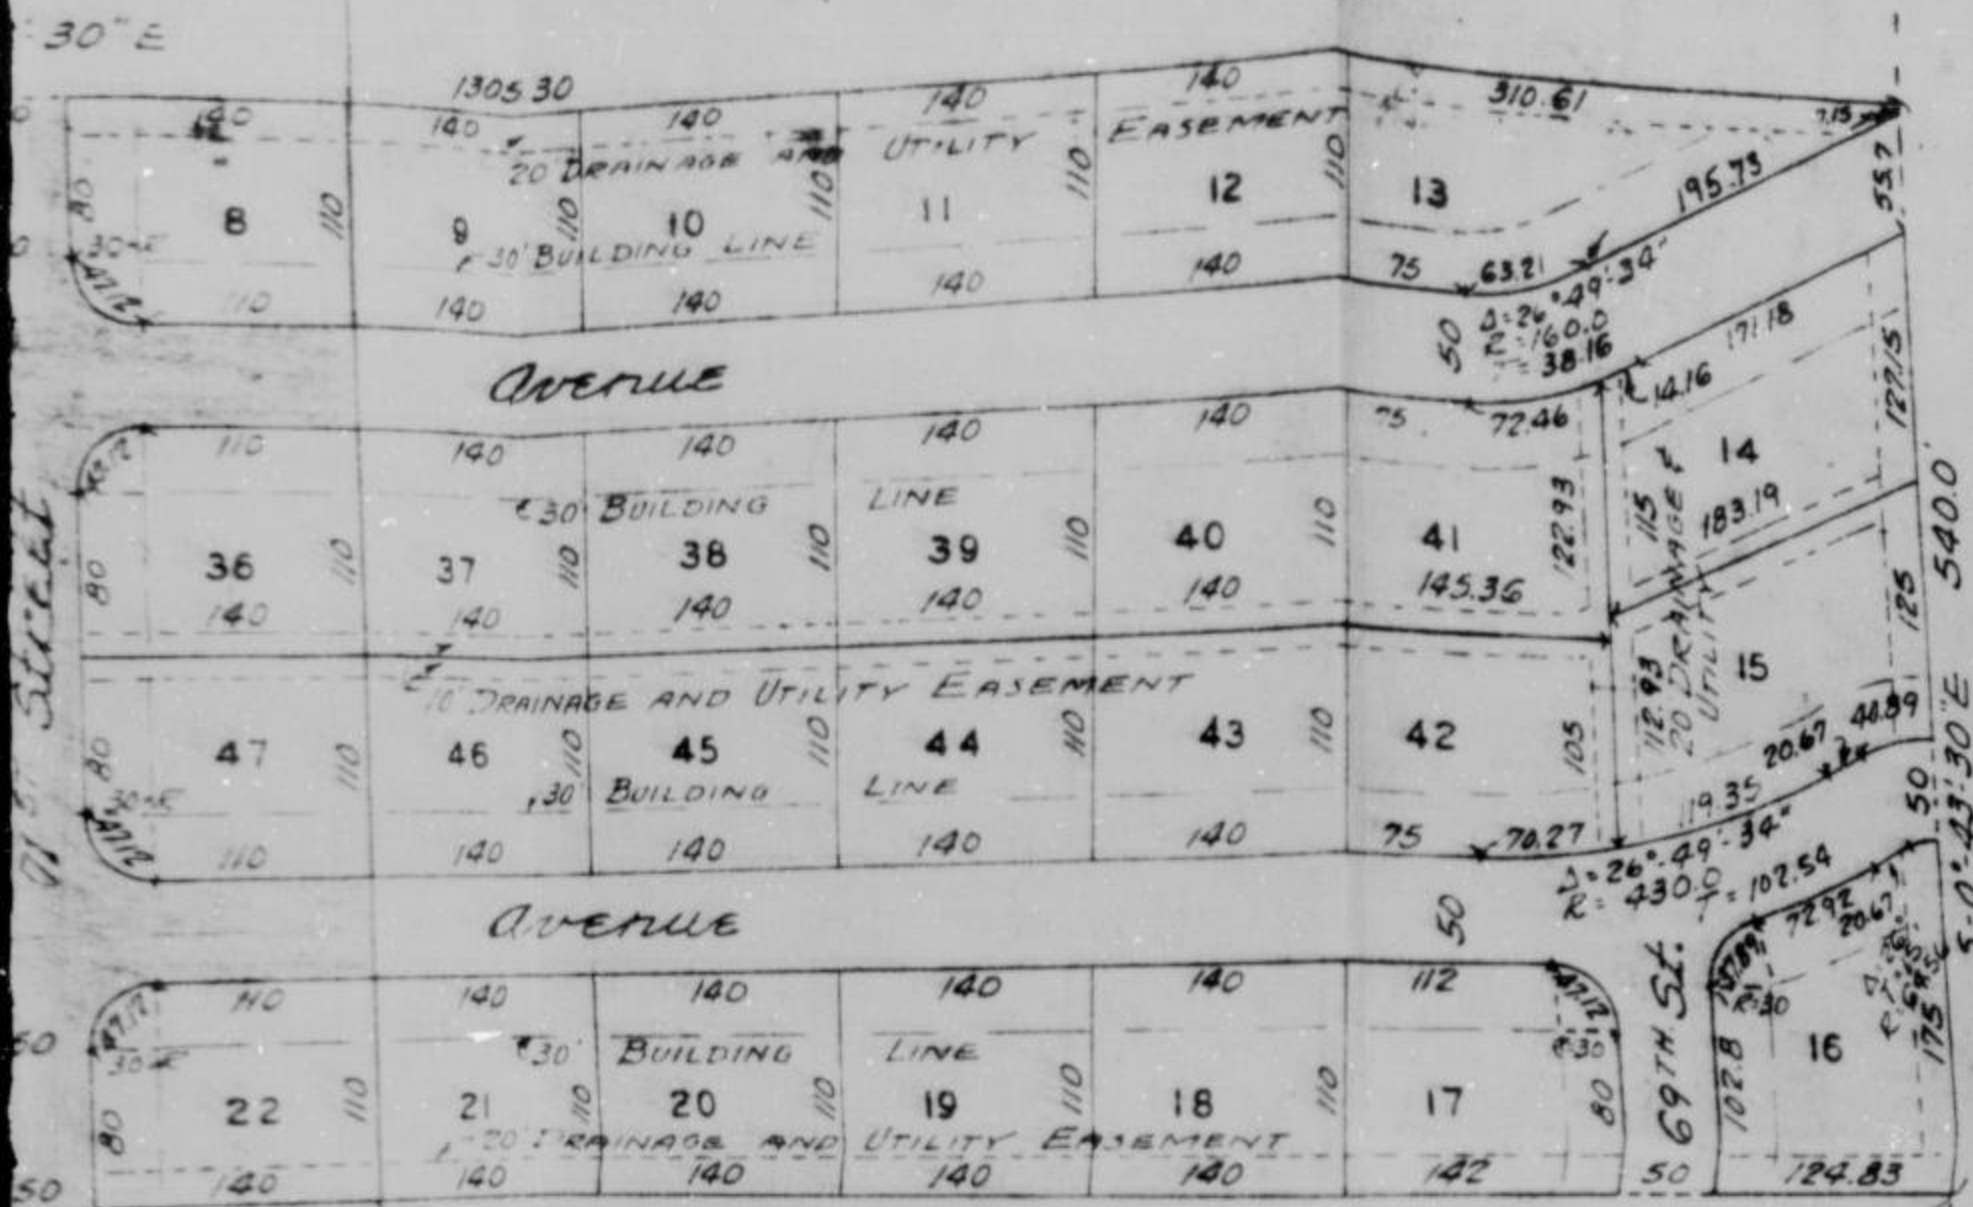 30" E
1305.30
140 140 140 140 140 310.61 7.15
20 DRAINAGE AND UTILITY EASEMENT
80 110 110 110 110 110 195.73 55.7
8 9 10 11 12 13
30' BUILDING LINE
110 140 140 140 140 75 63.21
Δ=26°-49'-34"
R=160.0
T=38.16
50
AVENUE
171.18
14.16
127.15
47.12 110 140 140 140 140 75 72.46
30' BUILDING LINE
80 110 110 110 110 110 122.93 115
36 37 38 39 40 41 14
183.19
140 140 140 140 140 145.36
20 DRAINAGE &
UTILITY
540.0
125
15
10' DRAINAGE AND UTILITY EASEMENT
80 110 110 110 110 110 105 112.93
47 46 45 44 43 42
30' BUILDING LINE
20.67 44.89
110 140 140 140 140 75 70.27 119.35
50
Δ=26°-49'-34"
R=430.0
T=102.54
50
AVENUE
Street
S-0°-43'-30"E
72.92
20.67
47.12 110 140 140 140 140 112 47.12
R=30
30' BUILDING LINE
80 110 110 110 110 110 80 102.8 175
22 21 20 19 18 17 16
69TH St.
20' DRAINAGE AND UTILITY EASEMENT
50 140 140 140 140 140 142 50 124.83